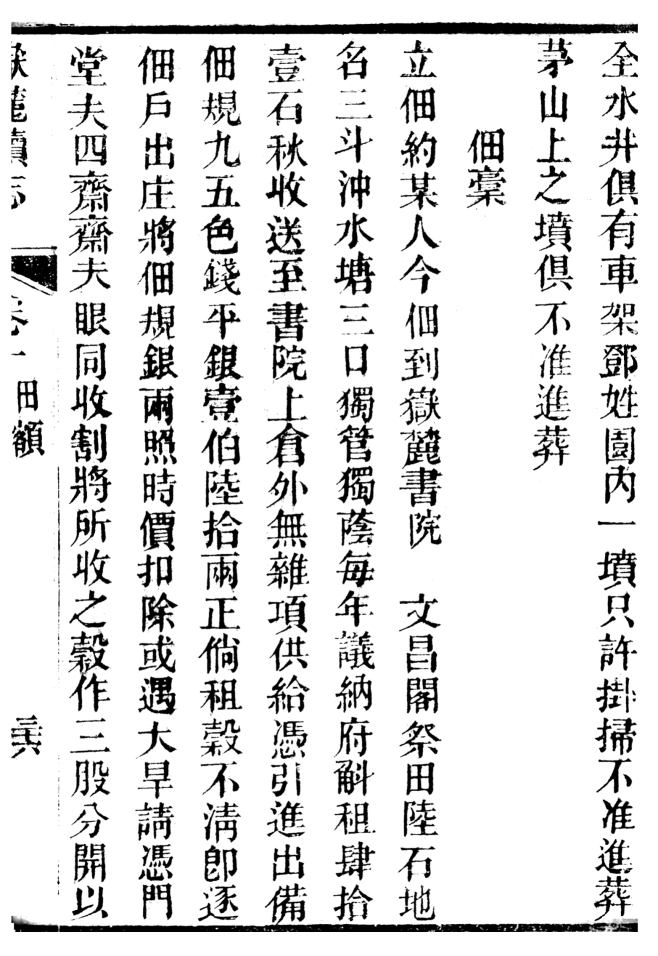 全水井俱有車架鄧姓園內一墳只許掛掃不准進葬
茅山上之墳俱不准進葬
佃稾
立佃約某人今佃到嶽麓書院　文昌閣祭田陸石地
名三斗沖水塘三口獨管獨蔭每年議納府斛租肆拾
壹石秋收送至書院上倉外無雜項供給憑引進出備
佃規九五色錢平銀壹伯陸拾兩正倘租穀不淸卽逐
佃戶出庄將佃規銀兩照時價扣除或遇大旱請憑門
堂夫四齋齋夫眼同收割將所收之穀作三股分開以
嶽麓續志　卷一　田額　三六